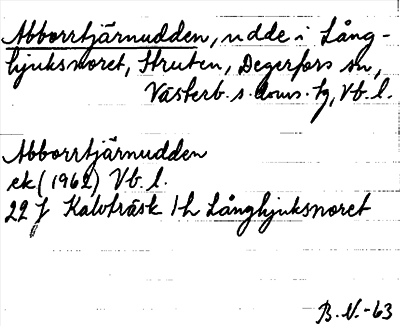 Abborrtjärnudden, udde i Lång-
hjuksnoret, Struten, Degerfors sn,
Västerb. s. doms. tg, Vb. l.
Abborrtjärnudden
ek (1962) Vb. l.
22 J Kalvträsk 1h Långhjuksnoret
B. N. -63